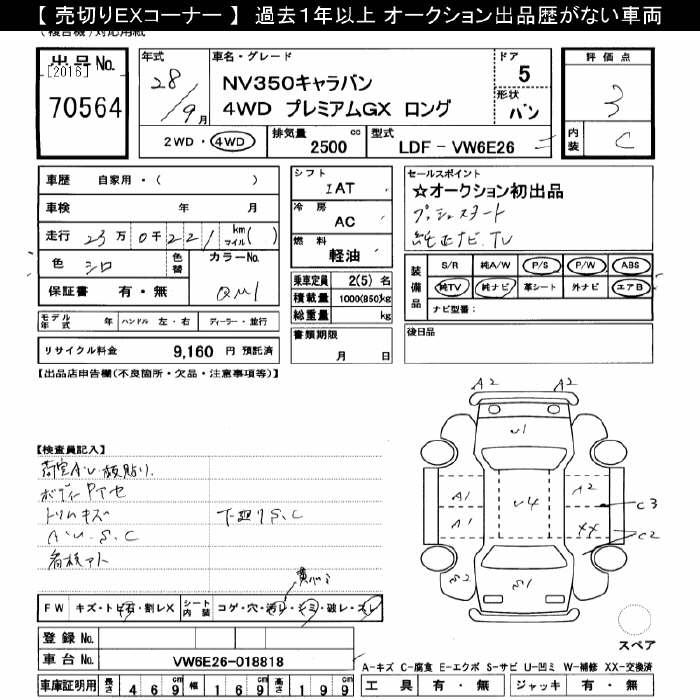 【 売切りEXコーナー 】 過去１年以上 オークション出品歴がない車両
(複合機)対応用紙
出品No.
[2016]
70564
年式
28/9月
車名・グレード
NV350キャラバン
4WD プレミアムGX ロング
ドア
5
形状
バン
評価点
3
内装
C
2WD・4WD
排気量
2500 cc
型式
LDF - VW6E26
車歴 自家用・( )
車検 年 月
走行 23万0千221 km マイル( )
色 シロ 色替
カラーNo.
QM1
保証書 有・無
モデル年式 年 ハンドル 左・右 ディーラー・並行
リサイクル料金 9,160 円 預託済
シフト
IAT
冷房
AC
燃料
軽油
乗車定員 2(5) 名
積載量 1000(850)kg
総重量 kg
書類期限
月 日
セールスポイント
☆オークション初出品
プッシュスタート
純正ナビ.TV
装備品
S/R 純A/W P/S P/W ABS
純TV 純ナビ 革シート 外ナビ エアB
ナビ型番：
後日品
【出品店申告欄(不良箇所・欠品・注意事項等)】
【検査員記入】
荷室A・U・板貼り.
ボディ
トリムキズ
下廻りS.C
A・U.S.C
看板アト
FW キズ・トビ石・割レX
シート内装 コゲ・穴・汚レ・シミ・破レ・スレ
登録 No.
車台 No. VW6E26-018818
車庫証明用 長さ 469 cm 幅 169 cm 高さ 199 cm
A2 A2
U1
A1 U4 A2
C3
A1 XX
C2
S2 S1
スペア
A-キズ C-腐食 E-エクボ S-サビ U-凹ミ W-補修 XX-交換済
工具 有・無 ジャッキ 有・無